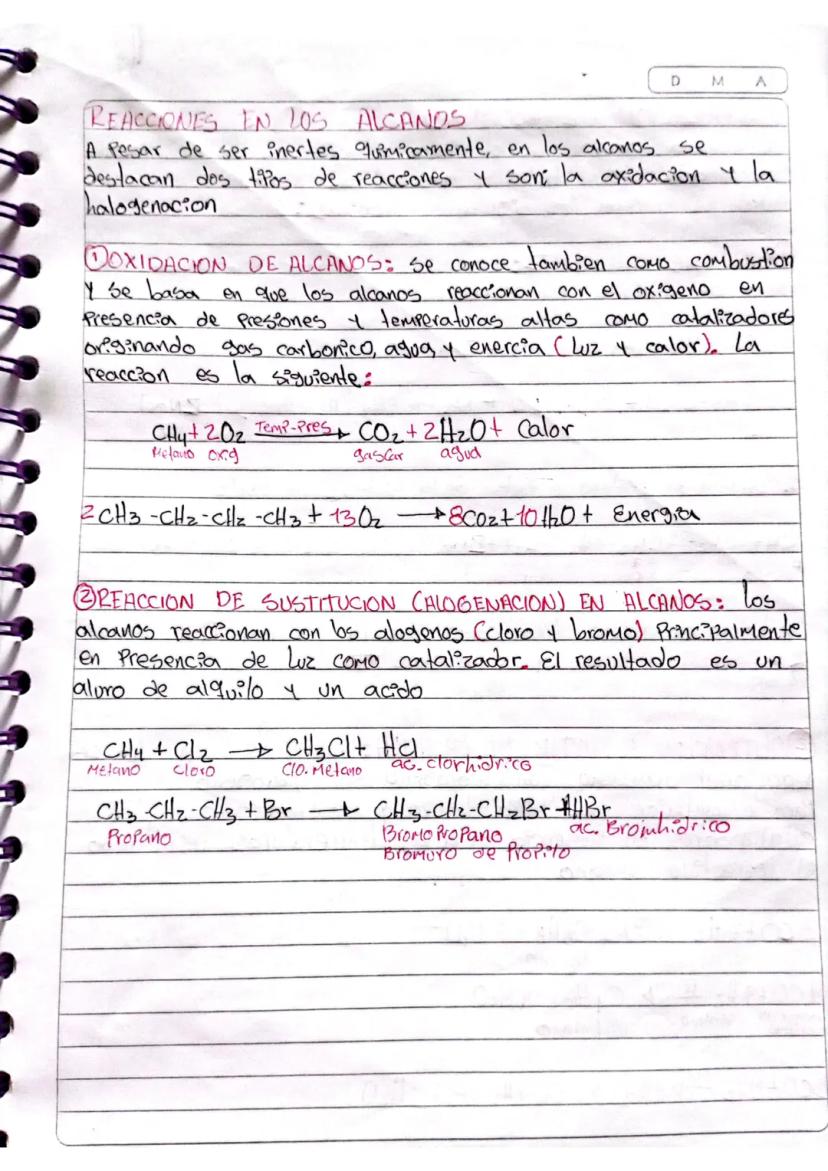 D M A
REACCIONES EN LOS ALCANOS
A Pesar de ser inertes químicamente, en los alcanos se
destacan dos tipos de reacciones y son: la oxidacion y la
halogenacion
① OXIDACION DE ALCANOS: se conoce tambien como combustion
y se basa en que los alcanos reaccionan con el oxigeno en
Presencia de Presiones y temperaturas altas como catalizadores
originando gas carbonico, agua y enercia (luz y calor). La
reaccion es la siguiente:
CH4 + 2O2 Temp-Pres → CO2 + 2H2O + Calor
Metano oxig gas Car agua
2CH3 -CH2-CH2 -CH3 + 13O2 → 8CO2+10 H2O + Energia
② REACCION DE SUSTITUCION (ALOGENACION) EN ALCANOS: los
alcanos reaccionan con los alogenos (cloro y bromo) Principalmente
en Presencia de luz como catalizador. El resultado es un
aluro de alquilo y un acido
CH4 + Cl2 → CH3Cl + Hcl
Metano Cloro Clo. Metano ac. clorhidrico
CH3 -CH2-CH3 + Br → CH3-CH2-CH2Br + HBr
Propano Bromo Propano ac. Bromhidrico
Bromuro de Propilo